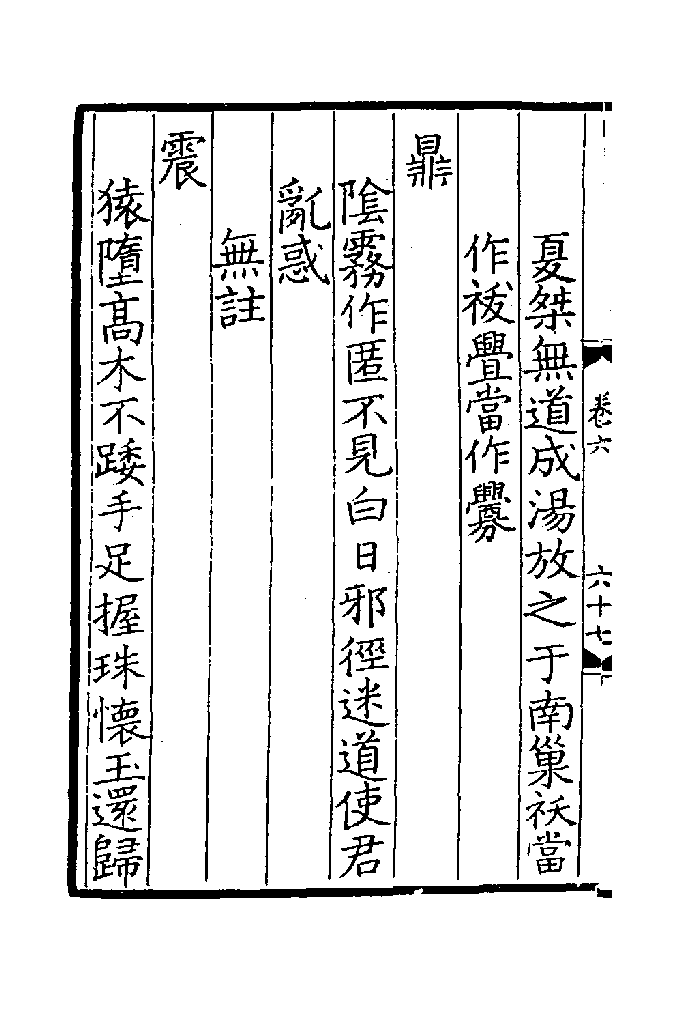 卷六
六十七
夏桀無道成湯放之于南巢祅當
作祓舋當作釁
鼎
陰霧作匿不見白日邪徑迷道使君
亂惑
無註
震
猿墮高木不踒手足握珠懷玉還歸